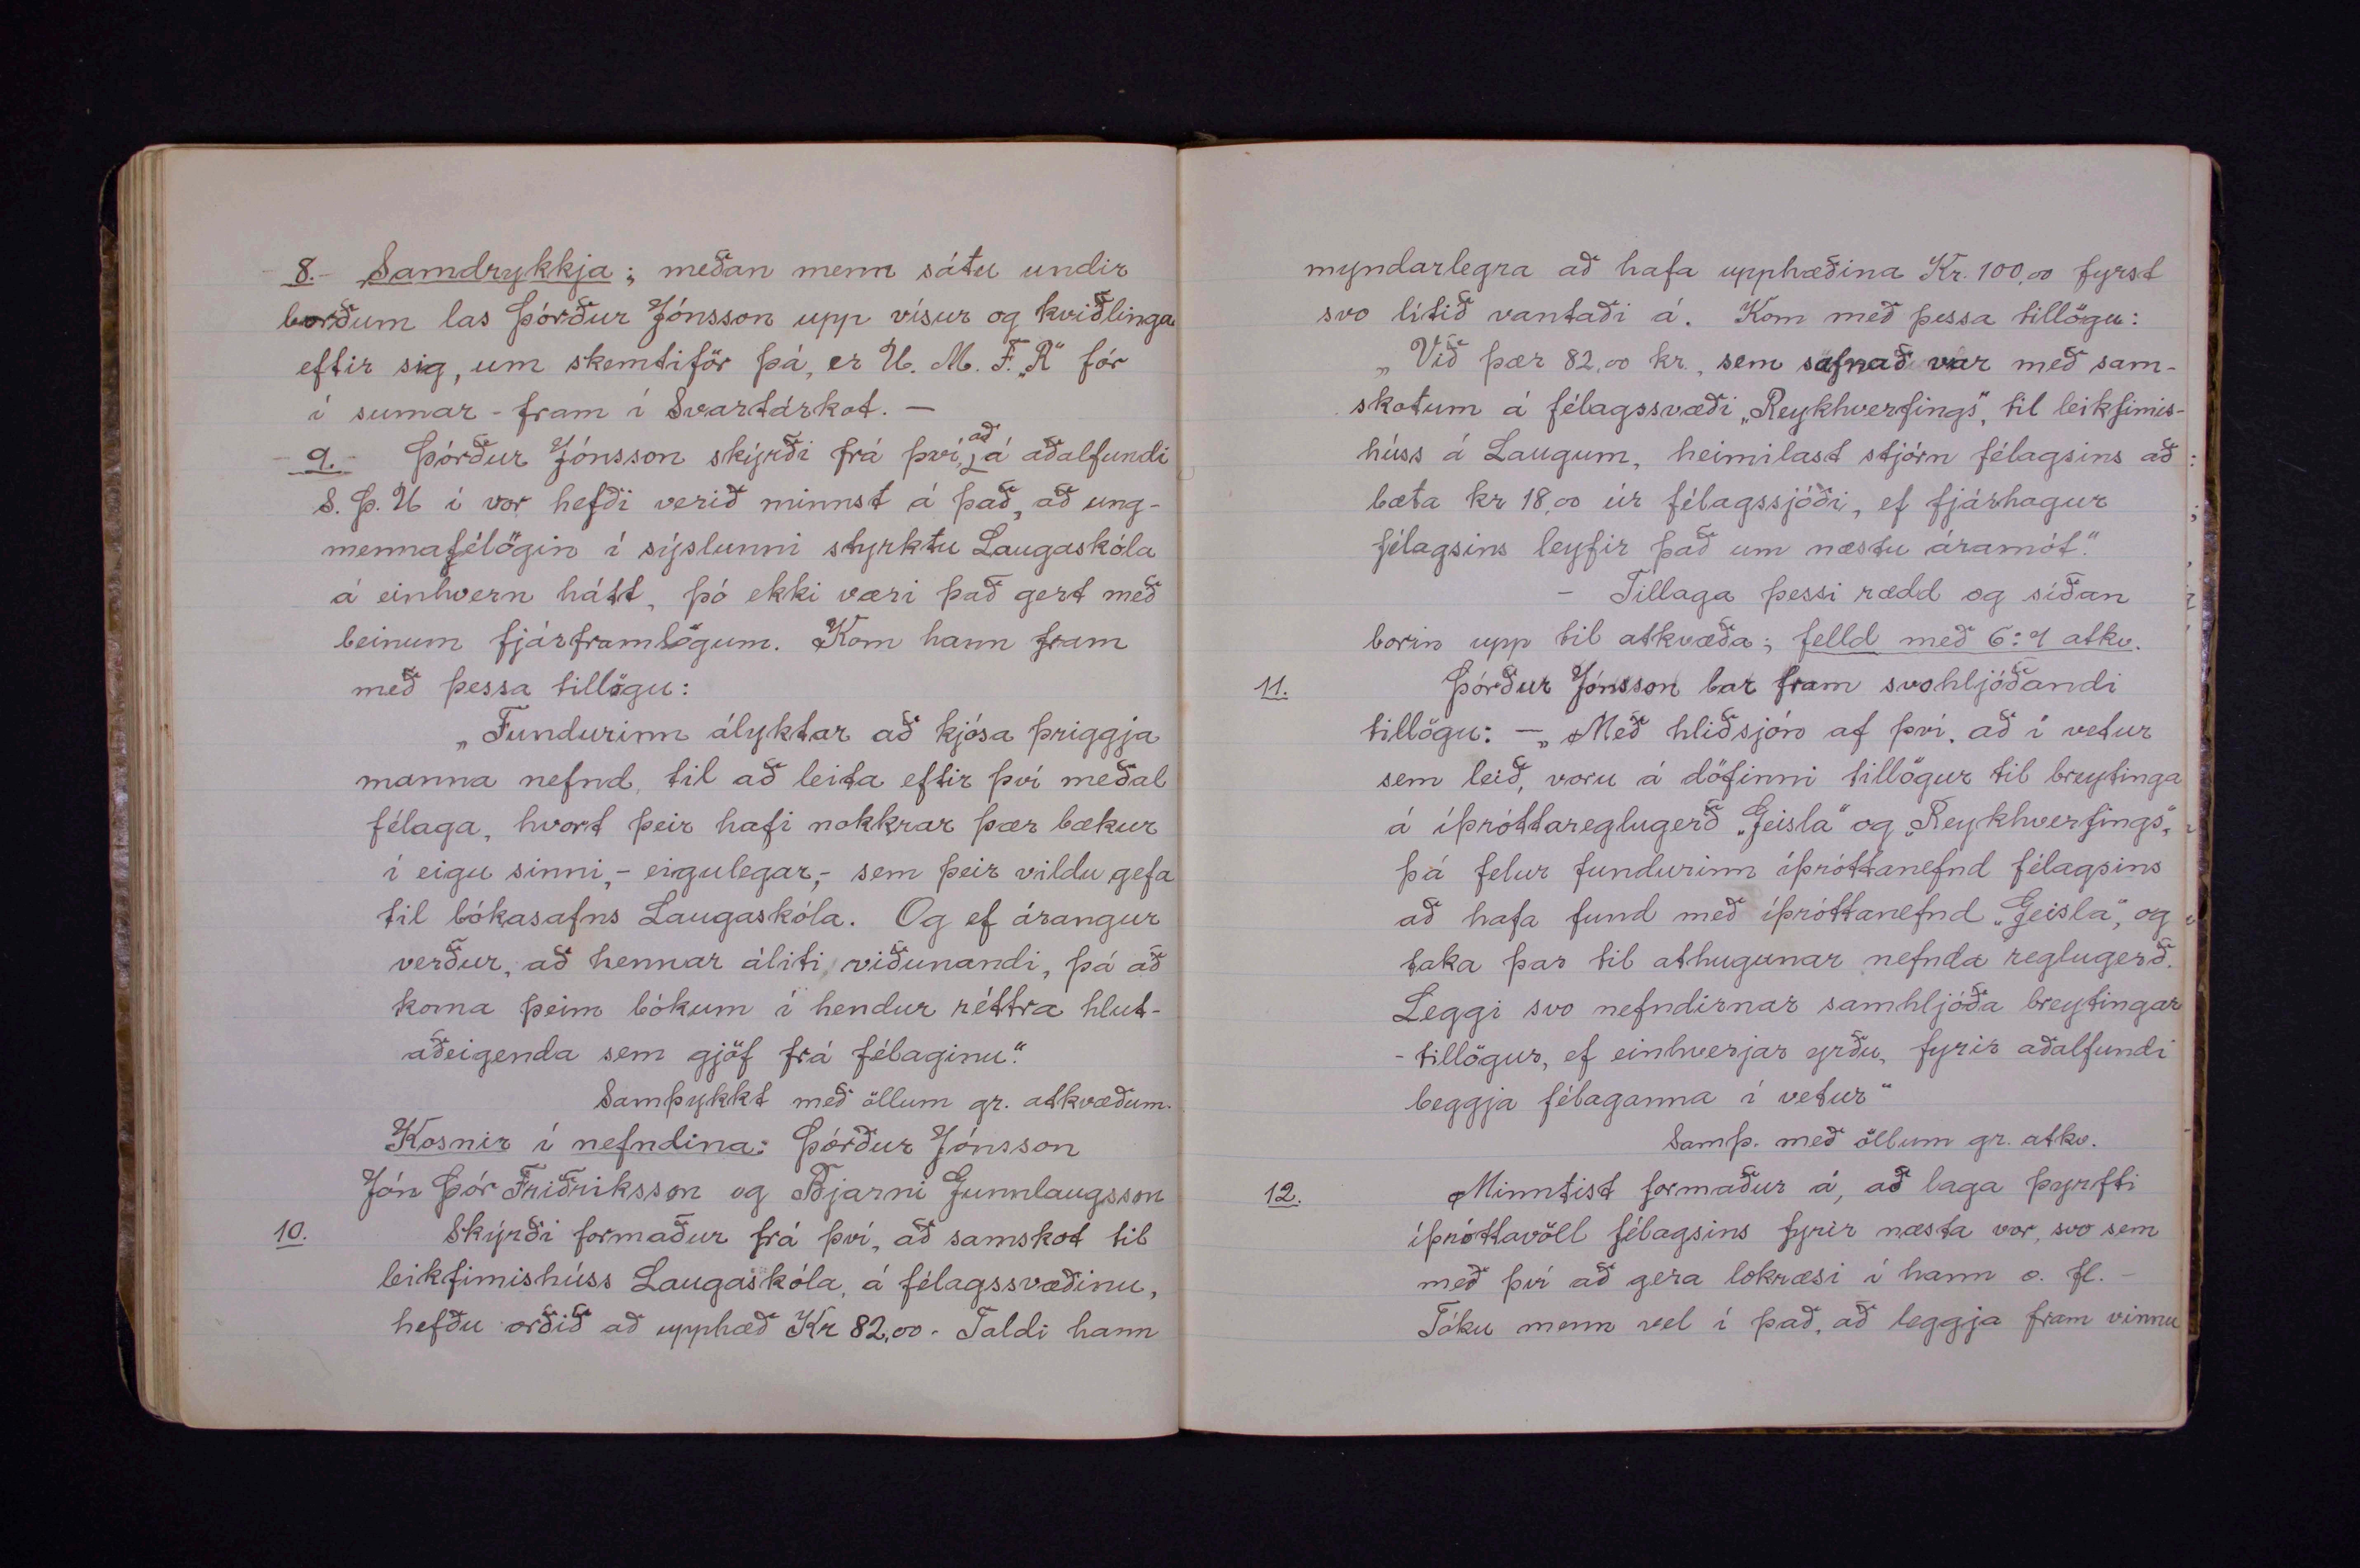 8.- Samdrykkja; meðan menn sátu undir
borðum las Þórður Jónsson upp vísur og kviðlinga
eftir sig, um skemtiför þá, er U. M. F. „R" fór
í sumar - fram í Svartárkot. —
9. - Þórður Jónsson skýrði frá því, að á aðalfundi
S. Þ. U í vor hefði verið minnst á það, að ung-
mennafélögin í sýslunni styrktu Laugaskóla
á einhvern hátt, þó ekki væri það gert með
beinum fjárframlögum. Kom hann fram
með þessa tillögu:
„Fundurinn ályktar að kjósa þriggja
manna nefnd, til að leita eftir því meðal
félaga, hvort þeir hafi nokkrar þær bækur
í eigu sinni, - eigulegar, - sem þeir vildu gefa
til bókasafns Laugaskóla. Og ef árangur
verður, að hennar áliti, viðunandi, þá að
koma þeim bókum í hendur réttra hlut-
aðeigenda sem gjöf frá félaginu."
Samþykkt með öllum gr. atkvæðum.
Kosnir í nefndina: Þórður Jónsson
Jón Þór Friðriksson og Bjarni Gunnlaugsson
10. Skýrði formaður frá því, að samskot til
leikfimishúss Laugaskóla, á félagssvæðinu,
hefðu orðið að upphæð Kr 82,00 - Taldi hann
myndarlegra að hafa upphæðina Kr. 100,00 fyrst
svo lítið vantaði á. Kom með þessa tillögu:
„Við þær 82,00 kr., sem safnað var með sam-
skotum á félagssvæði „Reykhverfings", til leikfimis-
húss á Laugum, heimilast stjórn félagsins að
bæta kr 18,00 úr félagssjóði, ef fjárhagur
félagsins leyfir það um næstu áramót."
- Tillaga þessi rædd og síðan
borin upp til atkvæða; felld með 6:4 atkv.
11. Þórður Jónsson bar fram svohljóðandi
tillögu: — „Með hliðsjón af því, að í vetur
sem leið, voru á döfinni tillögur til breytinga
á íþróttareglugerð „Geisla" og „Reykhverfings",
þá felur fundurinn íþróttanefnd félagsins
að hafa fund með íþróttanefnd „Geisla", og
taka þar til athugunar nefnda reglugerð.
Leggi svo nefndirnar samhljóða breytingar
- tillögur, ef einhverjar yrðu, fyrir aðalfundi
beggja félaganna í vetur"
Samþ. með öllum gr. atkv.
12. Minntist formaður á, að laga þyrfti
íþróttavöll félagsins fyrir næsta vor, svo sem
með því að gera lokræsi í hann o. fl. -
Tóku menn vel í það, að leggja fram vinnu